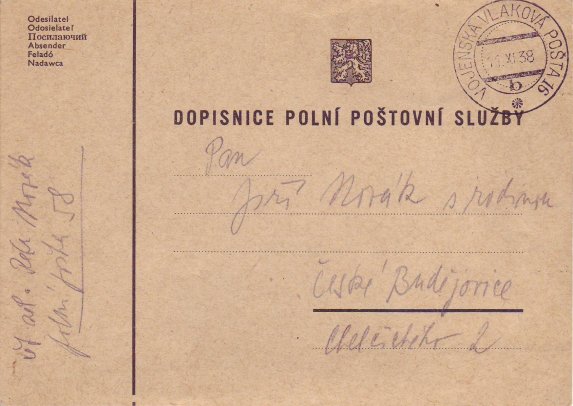 Odesílatel
Odosielateľ
Посилаючий
Absender
Feladó
Nadawca
VOJENSKÁ VLAKOVÁ POŠTA 16
XI 38
b
DOPISNICE POLNÍ POŠTOVNÍ SLUŽBY
Pan
Jiří Novák s rodinou
České Budějovice
2
Novák
polní pošta 58